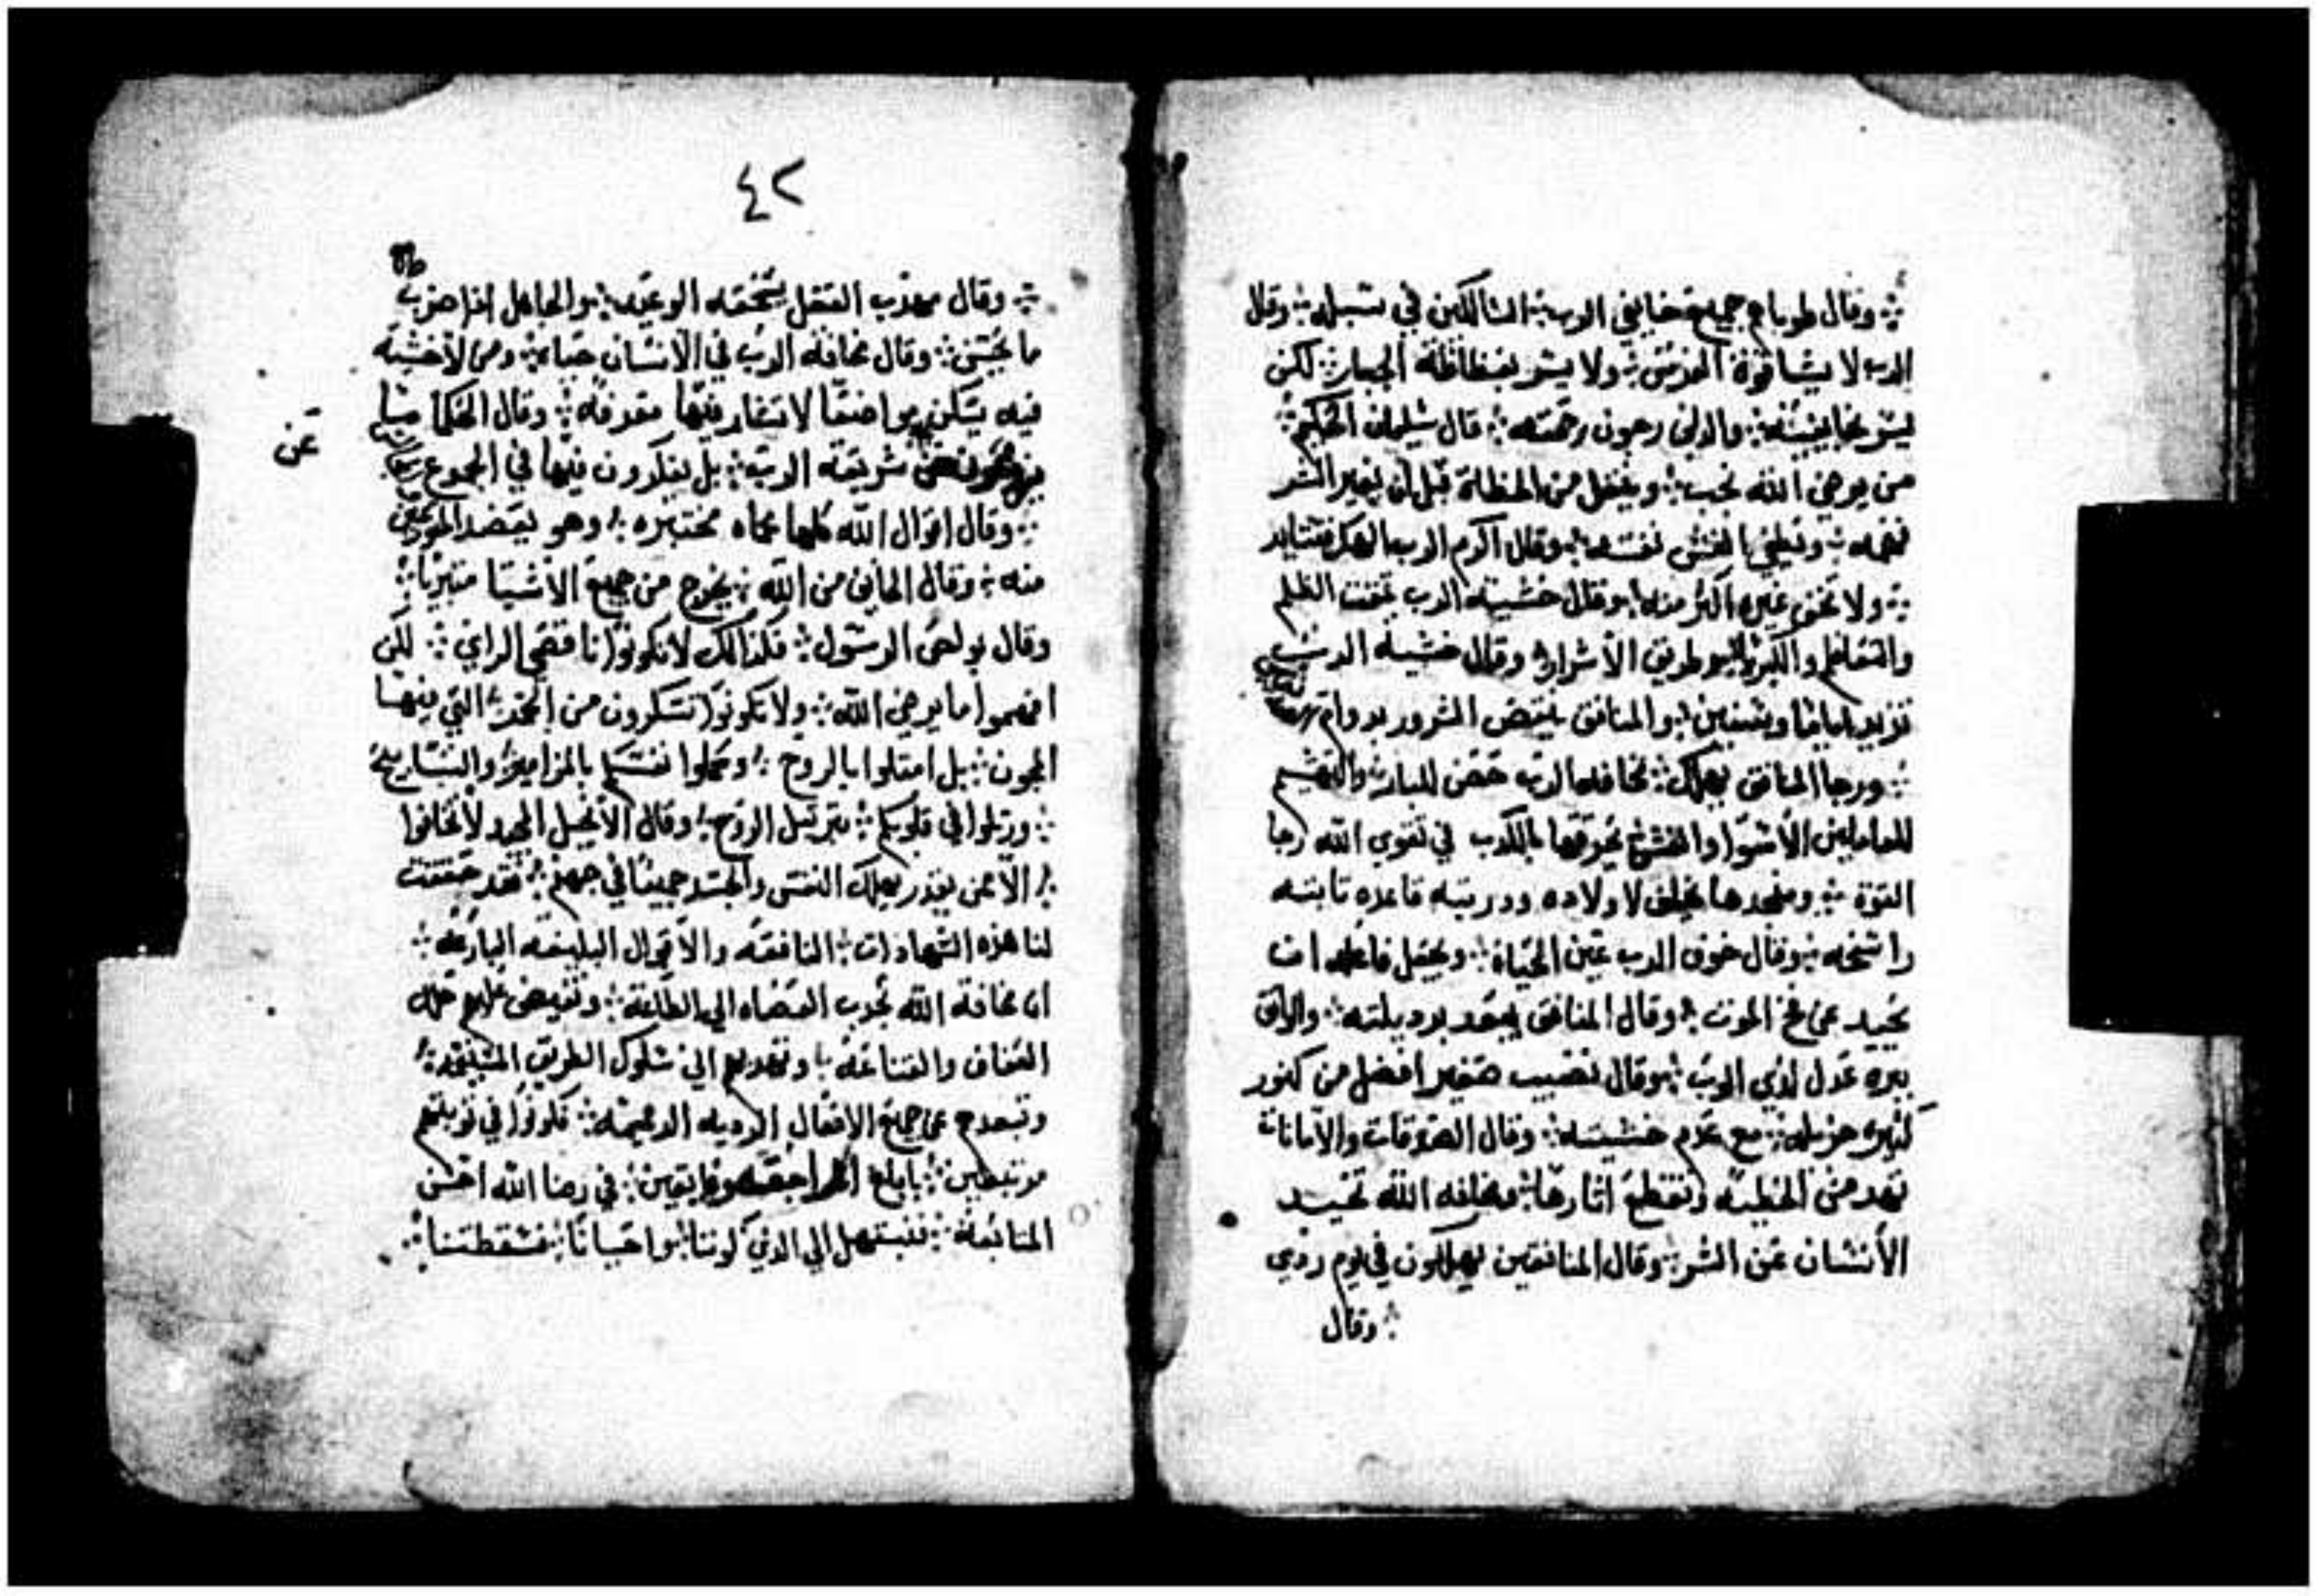 وقال طوباهم جميع خايفي الرب السالكين في سبله وقال
الرب لا يشا قوة الفرس ولا يسر بفظاظة الجبار لكن
يسر بخايفينه والدين يرجون رحمته قال سليمان الحكيم
من يرضي الله نجب ويغفل من الخطاة قبل ان يغير الشر
فهمه ويطغي بالغش نفسه وقال اكرم الرب الهك فتتايد
ولا تخف غيره اكثر منه وقال خشية الرب تمقت الظلم
والتعاظم والكبريا وطريق الاشرار وقال خشية الرب
تزيد اياما وسنين والمنافق ينقص السرور بدوام
ورجا المنافق يهلك مخافة الرب حصن للبار والتهشيم
للعاملين الأسوا والخشوع بالكدب في تقوي الله رجا
القوة ومن بعدها يخلف لاولاده ودريته قاعده تابته
راسخه وقال خوف الرب عين الحياة ويجعل فاعله ان
يحيد عن فخ الموت وقال المنافق يبعد برديلته والواثق
ببره عدل لدي الرب وقال نصيب صغير افضل من كنوز
كثيره جزيله مع عدم خشيته وقال الصدقات والأمانات
تمحص الخطيه وتقطع اثارها ومخافة الله تحيد
الأنسان عن الشر وقال المنافقين يهلكون في يوم ردي
وقال
٤٢
وقال مهدب العقل يستخفه الوعيد والجاهل اذا ضرب
ما يحس وقال مخافة الرب في الأنسان حياة ومن لاخشية
فيه يسكن مواضعا لا تتفار فيها معرفه وقال الحكما
شريعة الرب بل يفكرون فيها في الجموع
عن
وقال اقوال الله كلها محماه مختبره وهو يعضد المو
منه وقال الخايف من الله يخرج من جميع الأشيا متبريا
وقال بولص الرسول فلذالك لا تكونوا ناقصي الراي لكن
افهموا ما يرضي الله ولا تكونوا تسكرون من الخمر التي فيها
المجون بل امتلوا بالروح وكملوا نفسكم بالمزامير والتسابيح
ورتلوا في قلوبكم بترتيل الروح وقال الأنجيل المجيد لا تخافوا
الا ممن يقدر يهلك النفس والجسد جميعا في جهنم فقد حققت
لنا هذه الشهادات النافعه والأقوال البليغه البارعه
ان مخافة الله تجدب العصاه الي الطاعة وتفيض عليهم حلل
العفاف والقناعه وتهديهم الي سلوك الطريق المستقيم
وتبعدهم عن جميع الافعال الرديه الدميمه فكونوا في توبتكم
مرتبطين بابلغ المراجعه وفايقين في رضا الله احسن
المتابعه فنبتهل الي الدي كوننا واحيانا فسقطتنا